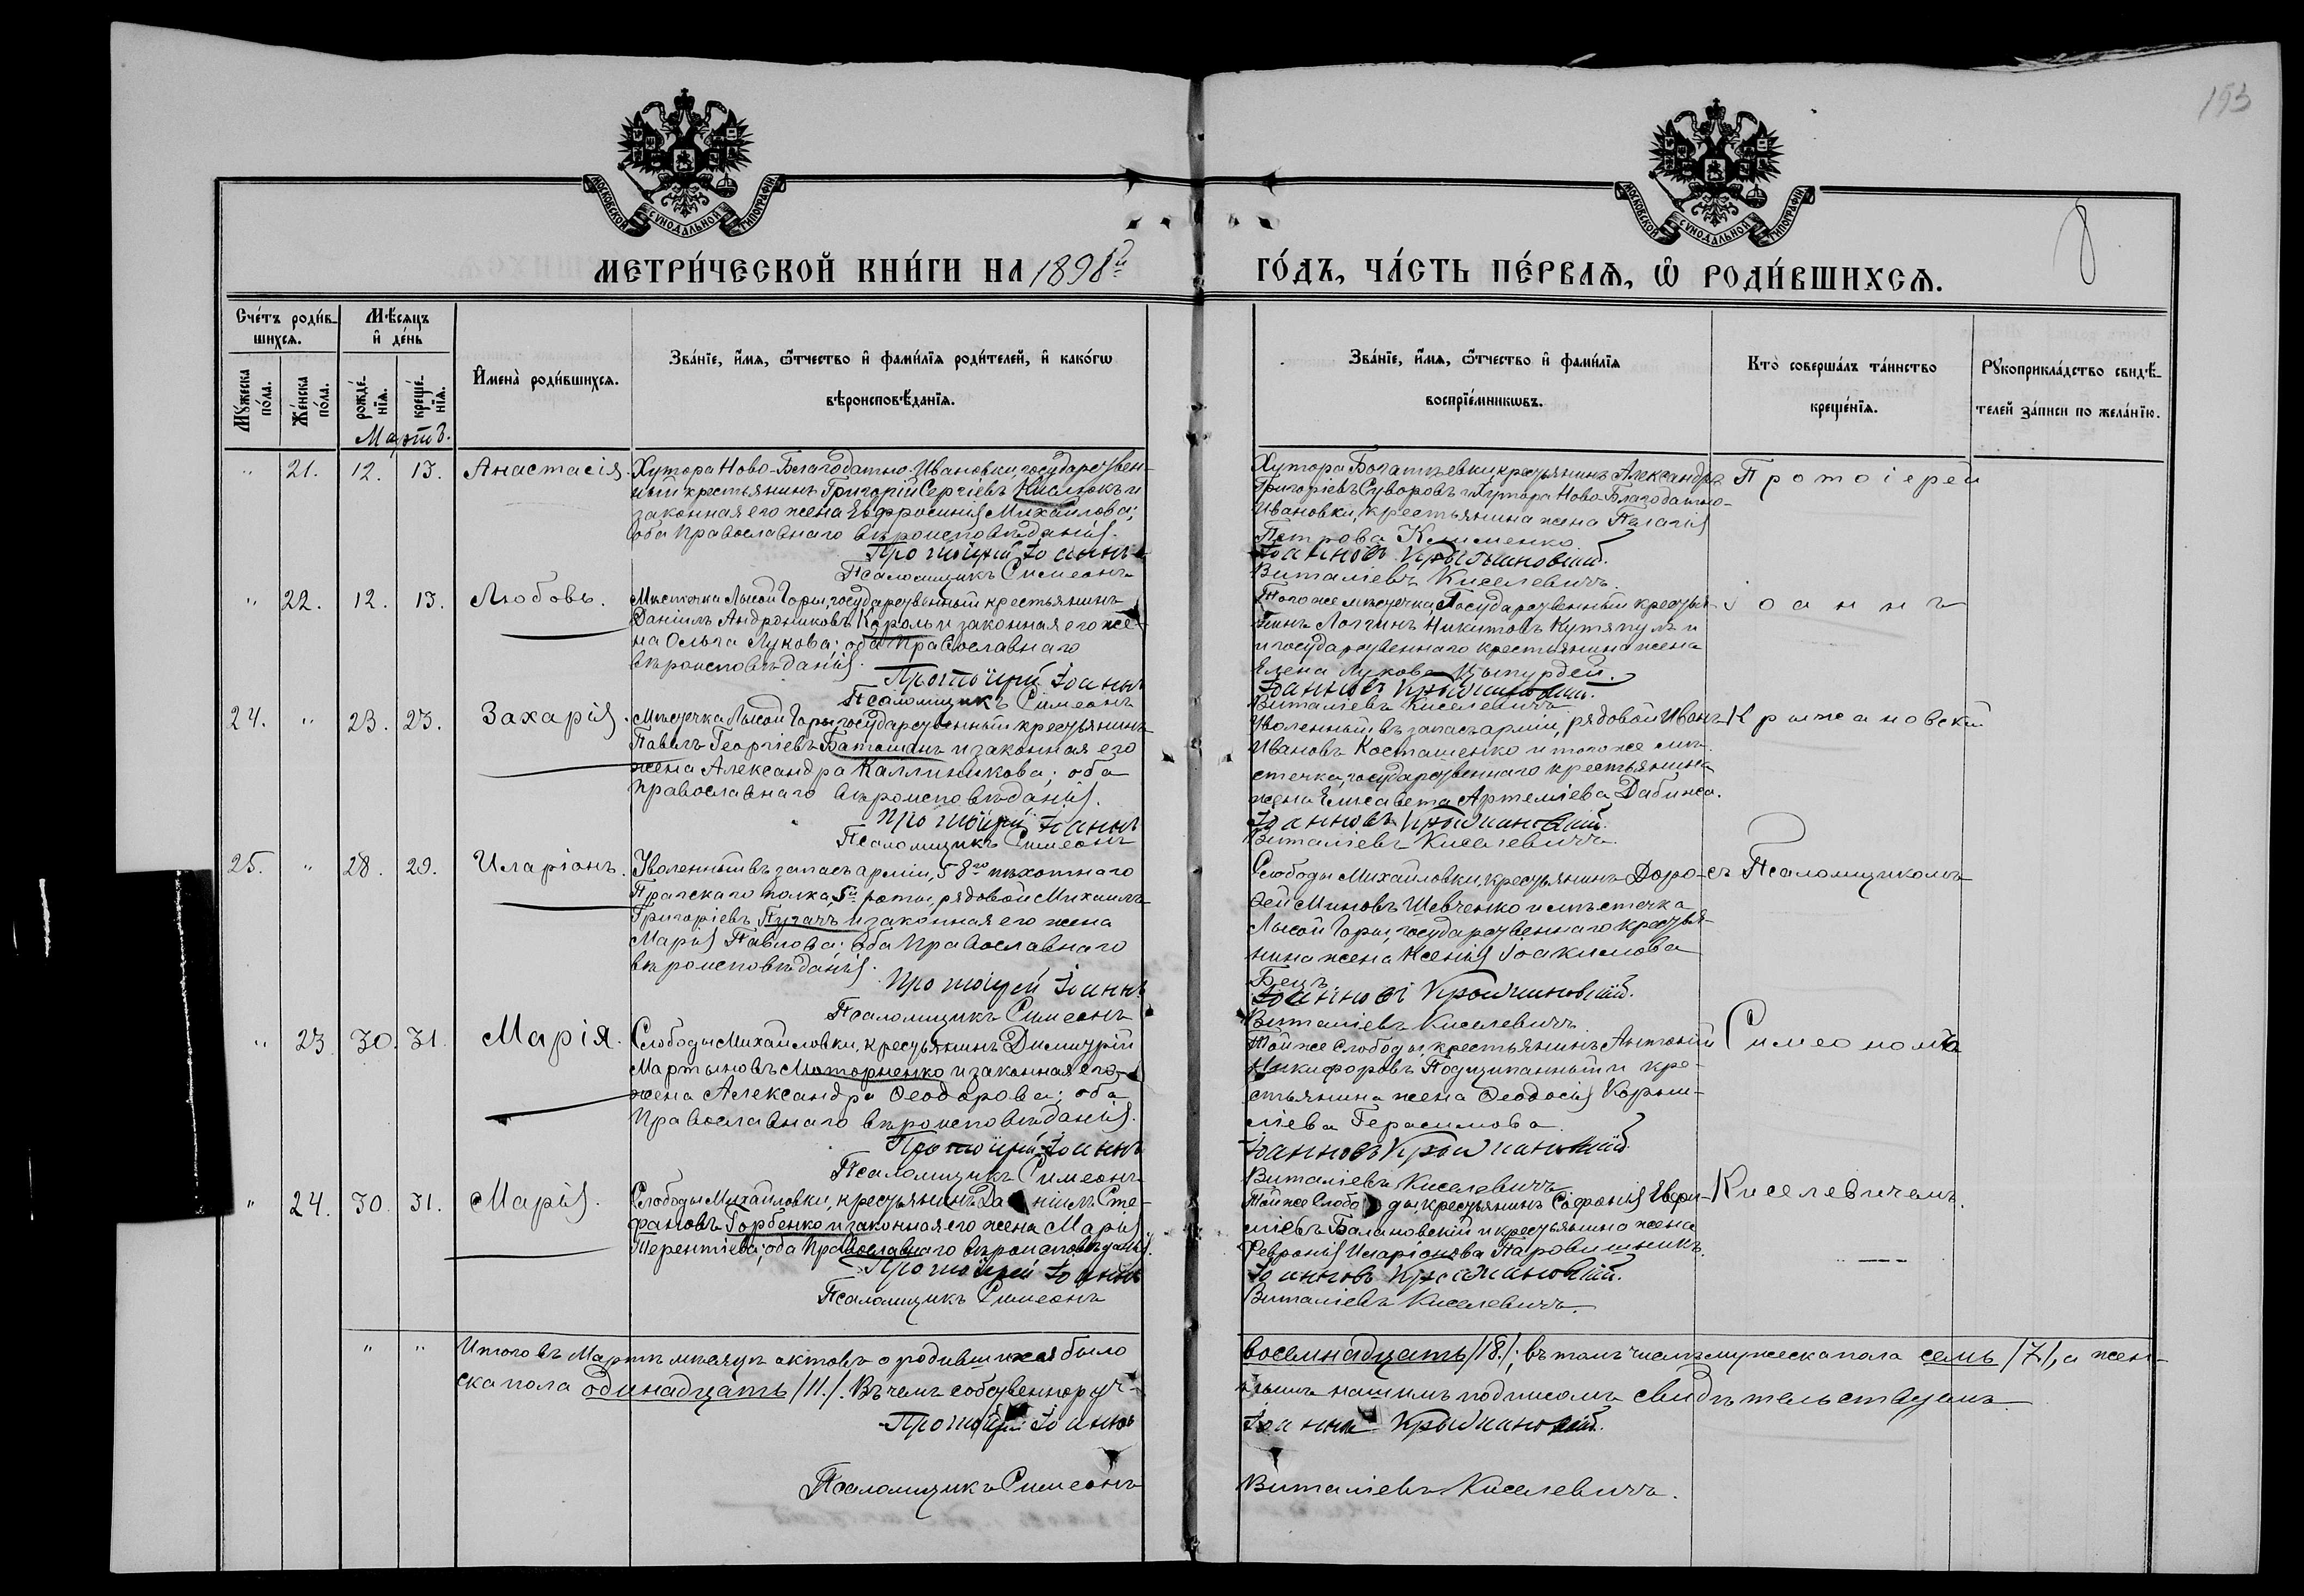 193
8
МОСКОВСКОЙ СѴНОДАЛЬНОЙ ТИПОГРАФІИ
МОСКОВСКОЙ СѴНОДАЛЬНОЙ ТИПОГРАФІИ
МЕТРИ́ЧЕСКОЙ КНИ́ГИ НА 1898й
ГО́ДЪ, ЧА́СТЬ ПЕ́РВАѦ, Ѡ҆ РОДИ́ВШИХСѦ.
Сче́тъ роди́в-
шихсѧ.
Мѣ́сѧцъ
и҆ де́нь
Мꙋ́жеска
по́ла.
Же́нска
по́ла.
рожде́-
нїѧ.
креще́-
нїѧ.
Мартъ.
И҆мена̀ роди́вшихсѧ.
Зва́нїе, и҆́мѧ, ѻ҆́тчество и҆ фами́лїѧ роди́телей, и҆ како́гѡ
вѣроисповѣ́данїѧ.
Зва́нїе, и҆́мѧ, ѻ҆́тчество и҆ фами́лїѧ
воспрїе́мникѡвъ.
Кто̀ соверша́лъ та́инство
креще́нїѧ.
Рꙋкоприкла́дство свидѣ́-
телей за́писи по жела́нїю.
" 21. 12. 13. Анастасія.
Хутора Ново-Благодатно-Ивановки, государствен-
ный крестьянинъ Григорій Сергіевъ Кислюкъ и
законная его жена Евфросинія Михайлова;
оба православнаго вѣроисповѣданія.
Протоіерей Іоаннъ
Псаломщикъ Симеонъ
Хутора Богатыевки, крестьянинъ Александръ
Григоріевъ Суворовъ и хутора Ново-Благодатно-
Ивановки, крестьянина жена Пелагія
Петрова Клименко
Іоанновъ Крыжановскій.
Виталіевъ Киселевичъ.
Протоіерей
" 22. 12. 13. Любовь.
Мѣстечка Лысой Горы, государственный крестьянинъ
Даніилъ Андрониковъ Король и законная его же-
на Ольга Лукова; оба православнаго
вѣроисповѣданія.
Протоіерей Іоаннъ
Псаломщикъ Симеонъ
Того же мѣстечка, государственный крестья-
нинъ Логгинъ Никитовъ Кутяпулъ и
и государственнаго крестьянина жена
Елена Лукова Цыпурдей.
Іоанновъ Крыжановскій.
Виталіевъ Киселевичъ
Іоаннъ
24. " 23. 23. Захарія.
Мѣстечка Лысой Горы, государственный крестьянинъ
Павелъ Георгіевъ Баташанъ и законная его
жена Александра Каллиникова; оба
православнаго вѣроисповѣданія.
Протоіерей Іоаннъ
Псаломщикъ Симеонъ
Уволенный въ запасъ арміи, рядовой Иванъ
Ивановъ Косташенко и того же мѣ-
стечка, государственнаго крестьянина
жена Елисавета Артеміева Дабижа.
Іоанновъ Крыжановскій.
Виталіевъ Киселевичъ.
Крыжановскій
25. " 28. 29. Иларіонъ.
Уволенный въ запасъ арміи, 58го пѣхотнаго
Прагскаго полка, 5й роты, рядовой Михаилъ
Григоріевъ Пугачъ и законная его жена
Марія Павлова; оба православнаго
вѣроисповѣданія.
Протоіерей Іоаннъ
Псаломщикъ Симеонъ
Слободы Михайловки, крестьянинъ Доро-
ѳей Миновъ Шевченко и мѣстечка
Лысой Горы, государственнаго крестья-
нина жена Ксенія Іоакимова
Бецъ.
Іоанновъ Крыжановскій.
Виталіевъ Киселевичъ
съ Псаломщикомъ
" 23. 30. 31. Марія.
Слободы Михайловки, крестьянинъ Димитрій
Мартыновъ Моторненко и законная его
жена Александра Ѳеодорова; оба
православнаго вѣроисповѣданія.
Протоіерей Іоаннъ
Псаломщикъ Симеонъ
Той же слободы, крестьянинъ Антоній
Никифоровъ Подципанный и кре-
стьянина жена Ѳеодосія Корни-
ліева Герасимова.
Іоанновъ Крыжановскій.
Виталіевъ Киселевичъ
Симеономъ
" 24. 30. 31. Марія.
Слободы Михайловки, крестьянинъ Даніилъ Сте-
фановъ Горбенко и законная его жена Марія
Терентіева; оба православнаго вѣроисповѣданія.
Протоіерей Іоаннъ
Псаломщикъ Симеонъ
Той же слободы, крестьянинъ Софонія Евфи-
міевъ Балановскій и крестьянина жена
Февронія Иларіонова Паровишникъ.
Іоанновъ Крыжановскій.
Виталіевъ Киселевичъ.
Киселевичемъ.
" " Итого въ Мартѣ мѣсяцѣ актовъ о родившихся было
восемнадцать /18./; въ томъ числѣ мужеска пола семь /7./, а жен-
ска пола одинадцать /11./. Въ чемъ собственноруч-
нымъ нашимъ подписомъ свидѣтельствуемъ
Протоіерей Іоаннъ
Іоанновъ Крыжановскій.
Псаломщикъ Симеонъ
Виталіевъ Киселевичъ.